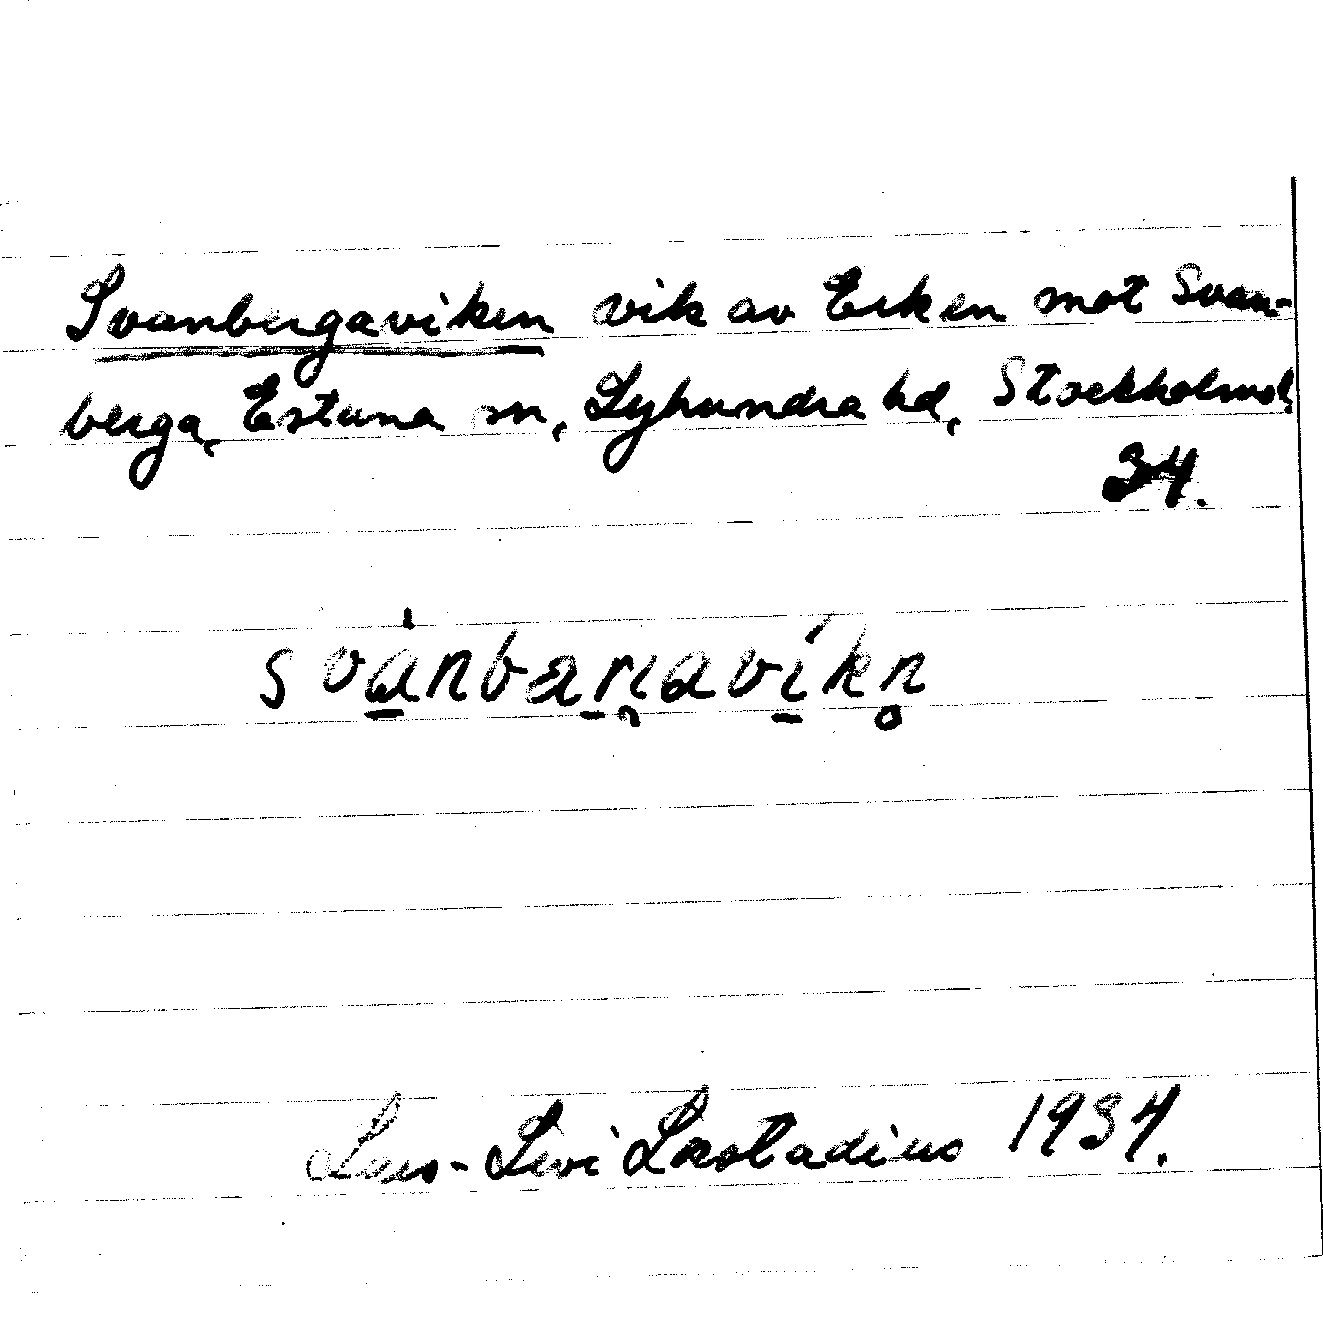 Svanbergaviken vik av Erken mot Svan-
berga, Estuna sn, Lyhundra hd, Stockholms l.
34.
Lars-Levi Læstadius 1934.